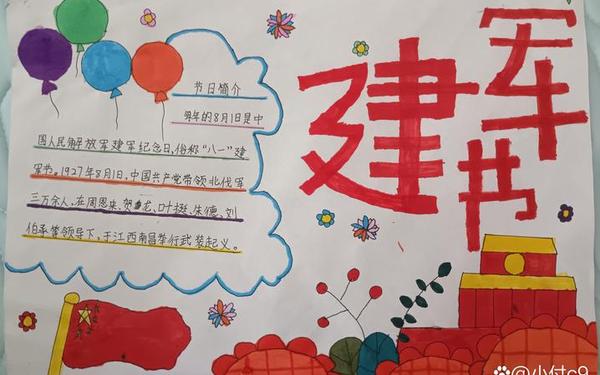 建
军
节
节日简介
每年的8月1日是中
国人民解放军建军纪念日,俗称“八一”建
军节。1927年8月1日,中国共产党带领北伐军
三万余人,在周恩来、贺龙、叶挺、朱德、刘
伯承等领导下,于江西南昌举行武装起义。
@小付c9